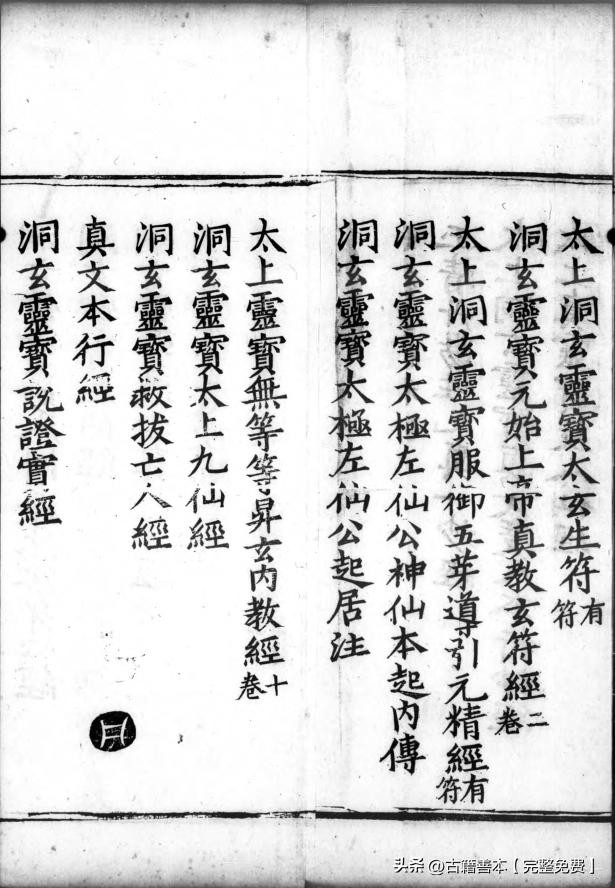 太上洞玄靈寶太玄生符有符
洞玄靈寶元始上帝真教玄符經二卷
太上洞玄靈寶服御五芽導引元精經有符
洞玄靈寶太極左仙公神仙本起內傳
洞玄靈寶太極左仙公起居注
太上靈寶無等等昇玄內教經十卷
洞玄靈寶太上九仙經
洞玄靈寶救拔亡人經
真文本行經
洞玄靈寶說證實經
头条 @古籍善本【完整免费】